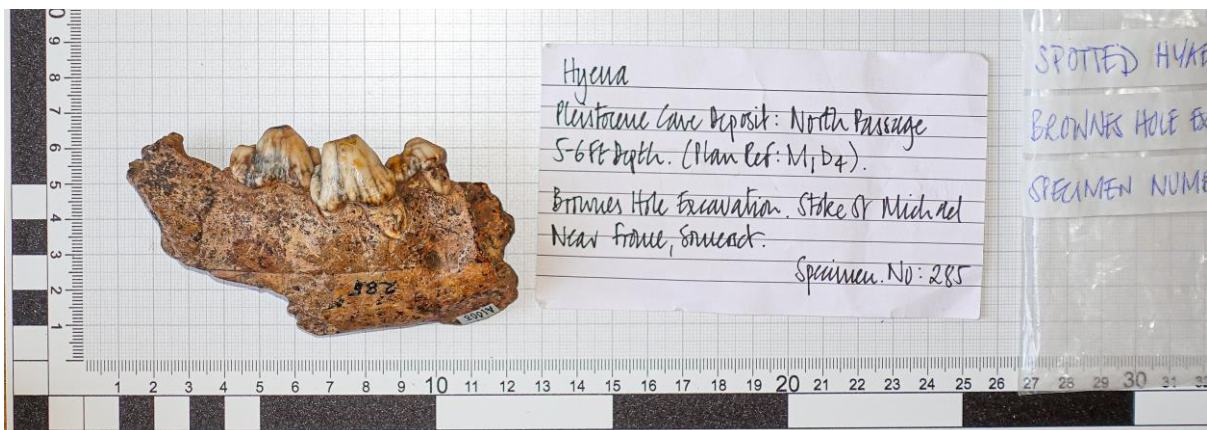 Hyena
Pleistocene Cave Deposit: North Passage
5-6 Ft Depth. (Plan Ref: M, b4).
Brownes Hole Excavation. Stoke St Michael
Near Frome, Somerset.
Specimen. No: 285
SPOTTED HYAE
BROWNES HOLE EX
SPECIMEN NUME
285
A1003
10
9
8
7
6
5
4
3
2
1
1 2 3 4 5 6 7 8 9 10 11 12 13 14 15 16 17 18 19 20 21 22 23 24 25 26 27 28 29 30 31 32